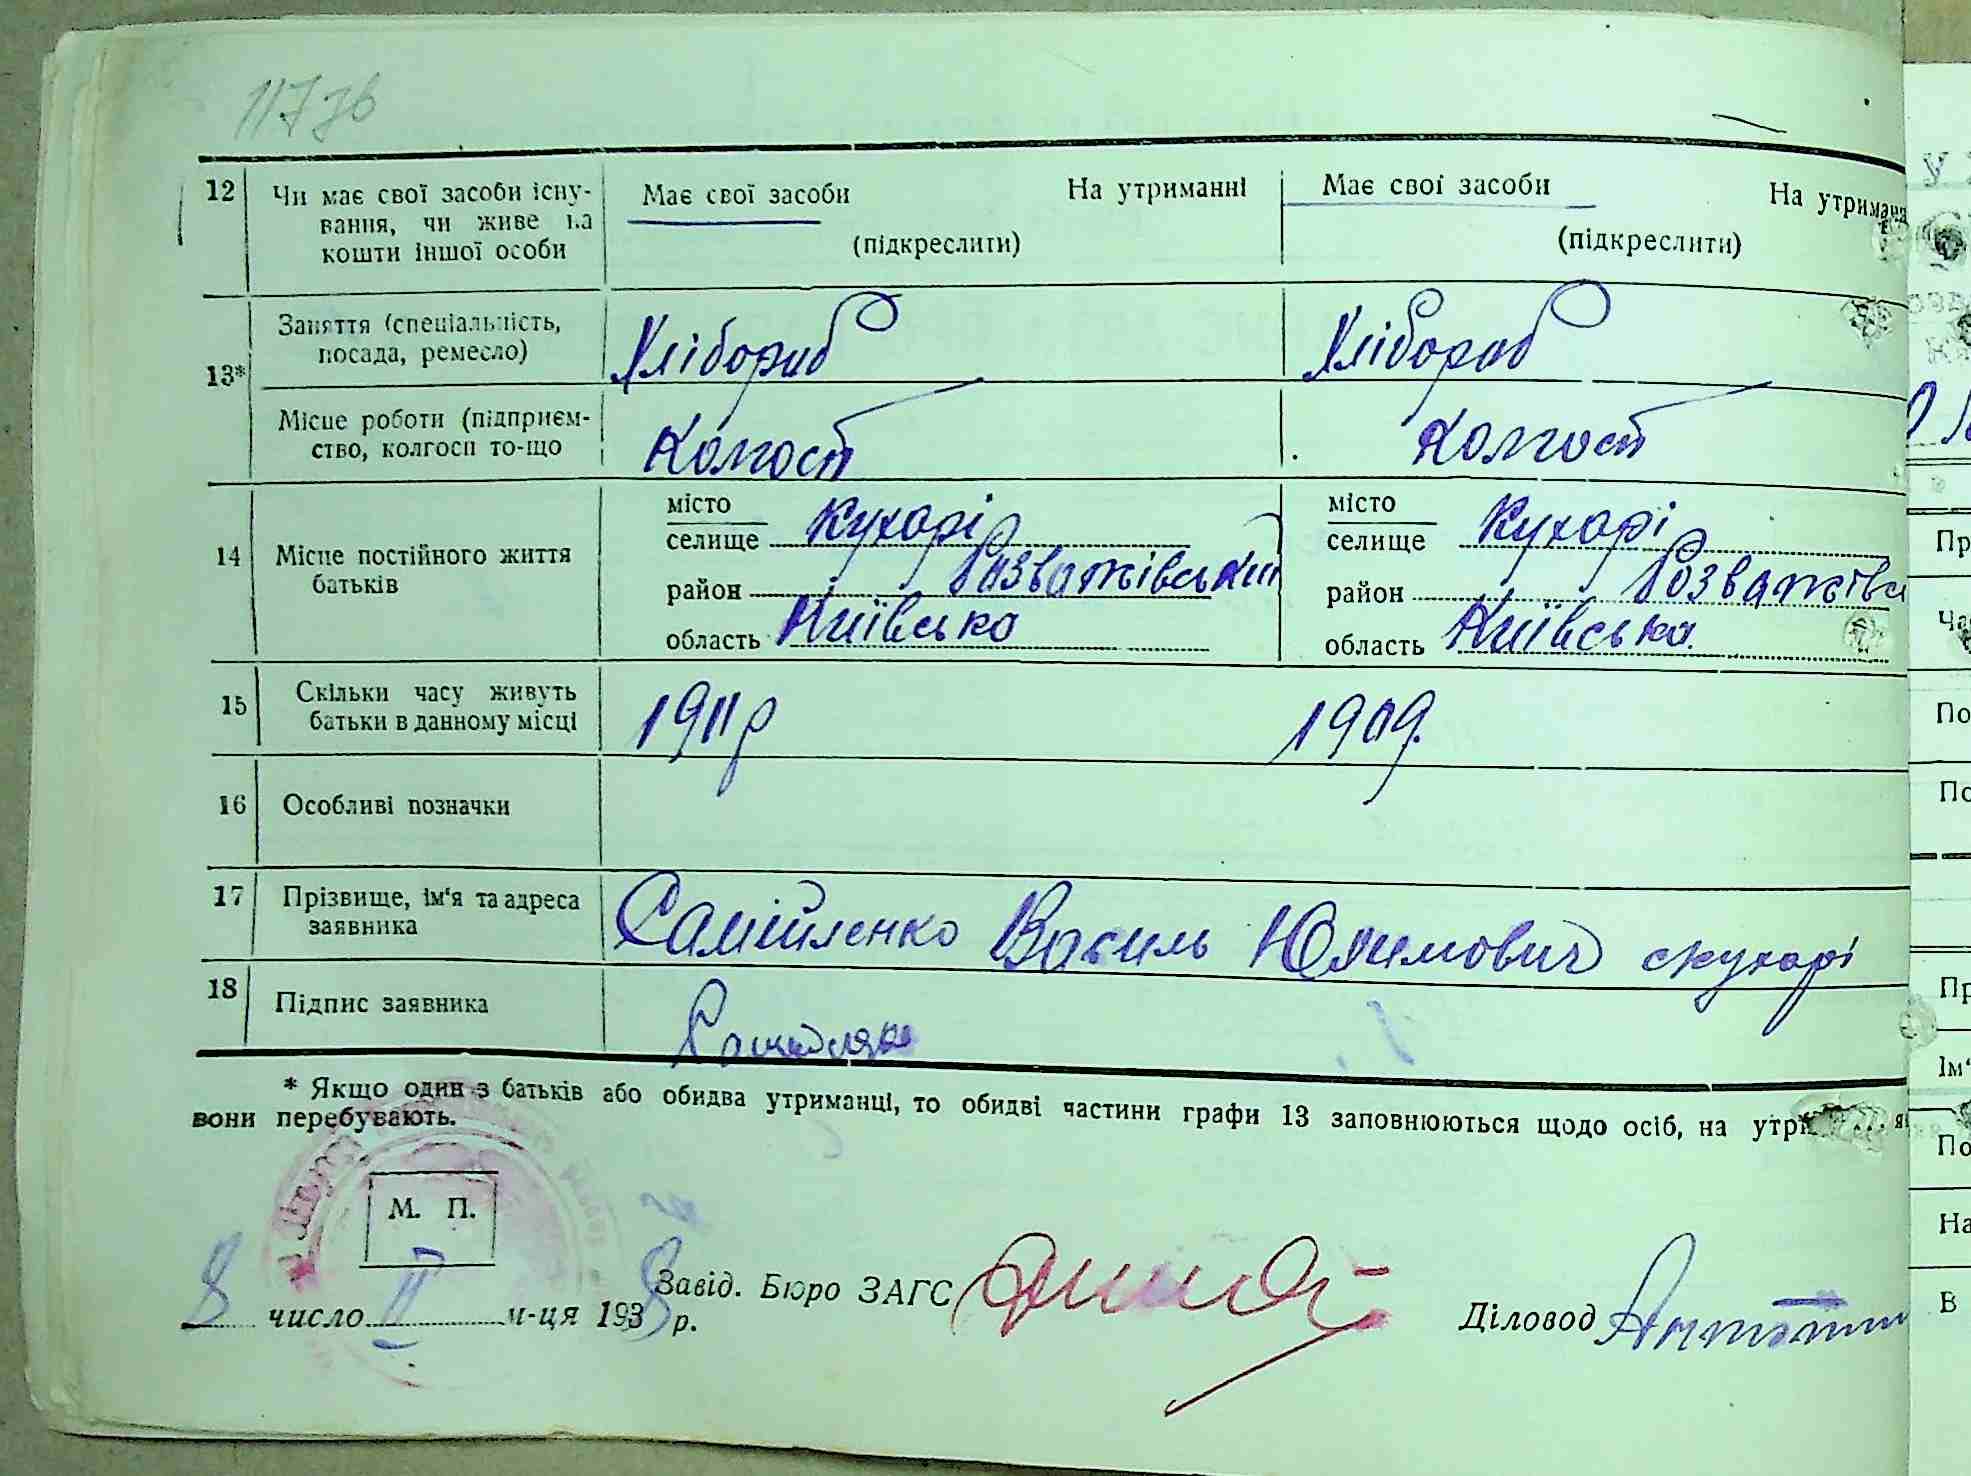 117 зв
12 Чи має свої засоби існу- Має свої засоби На утриманні Має свої засоби На утриманн
вання, чи живе на
кошти іншої особи (підкреслити) (підкреслити)
13* Заняття (спеціальність,
посада, ремесло) Хлібораб Хлібораб
Місце роботи (підприєм-
ство, колгосп то-що Колгосп Колгосп
14 Місце постійного життя
батьків
місто
селище Кухарі
район Розважівський
область Київська
місто
селище Кухарі
район Розважівс
область Київська
15 Скільки часу живуть
батьки в данному місці 1911р 1909.
16 Особливі позначки
17 Прізвище, ім'я та адреса
заявника Самійленко Василь Юхимович с кухарі
18 Підпис заявника
* Якщо один з батьків або обидва утриманці, то обидві частини графи 13 заповнюються щодо осіб, на
вони перебувають.
М. П.
8 число II м-ця 1938 р. Завід. Бюро ЗАГС
Діловод